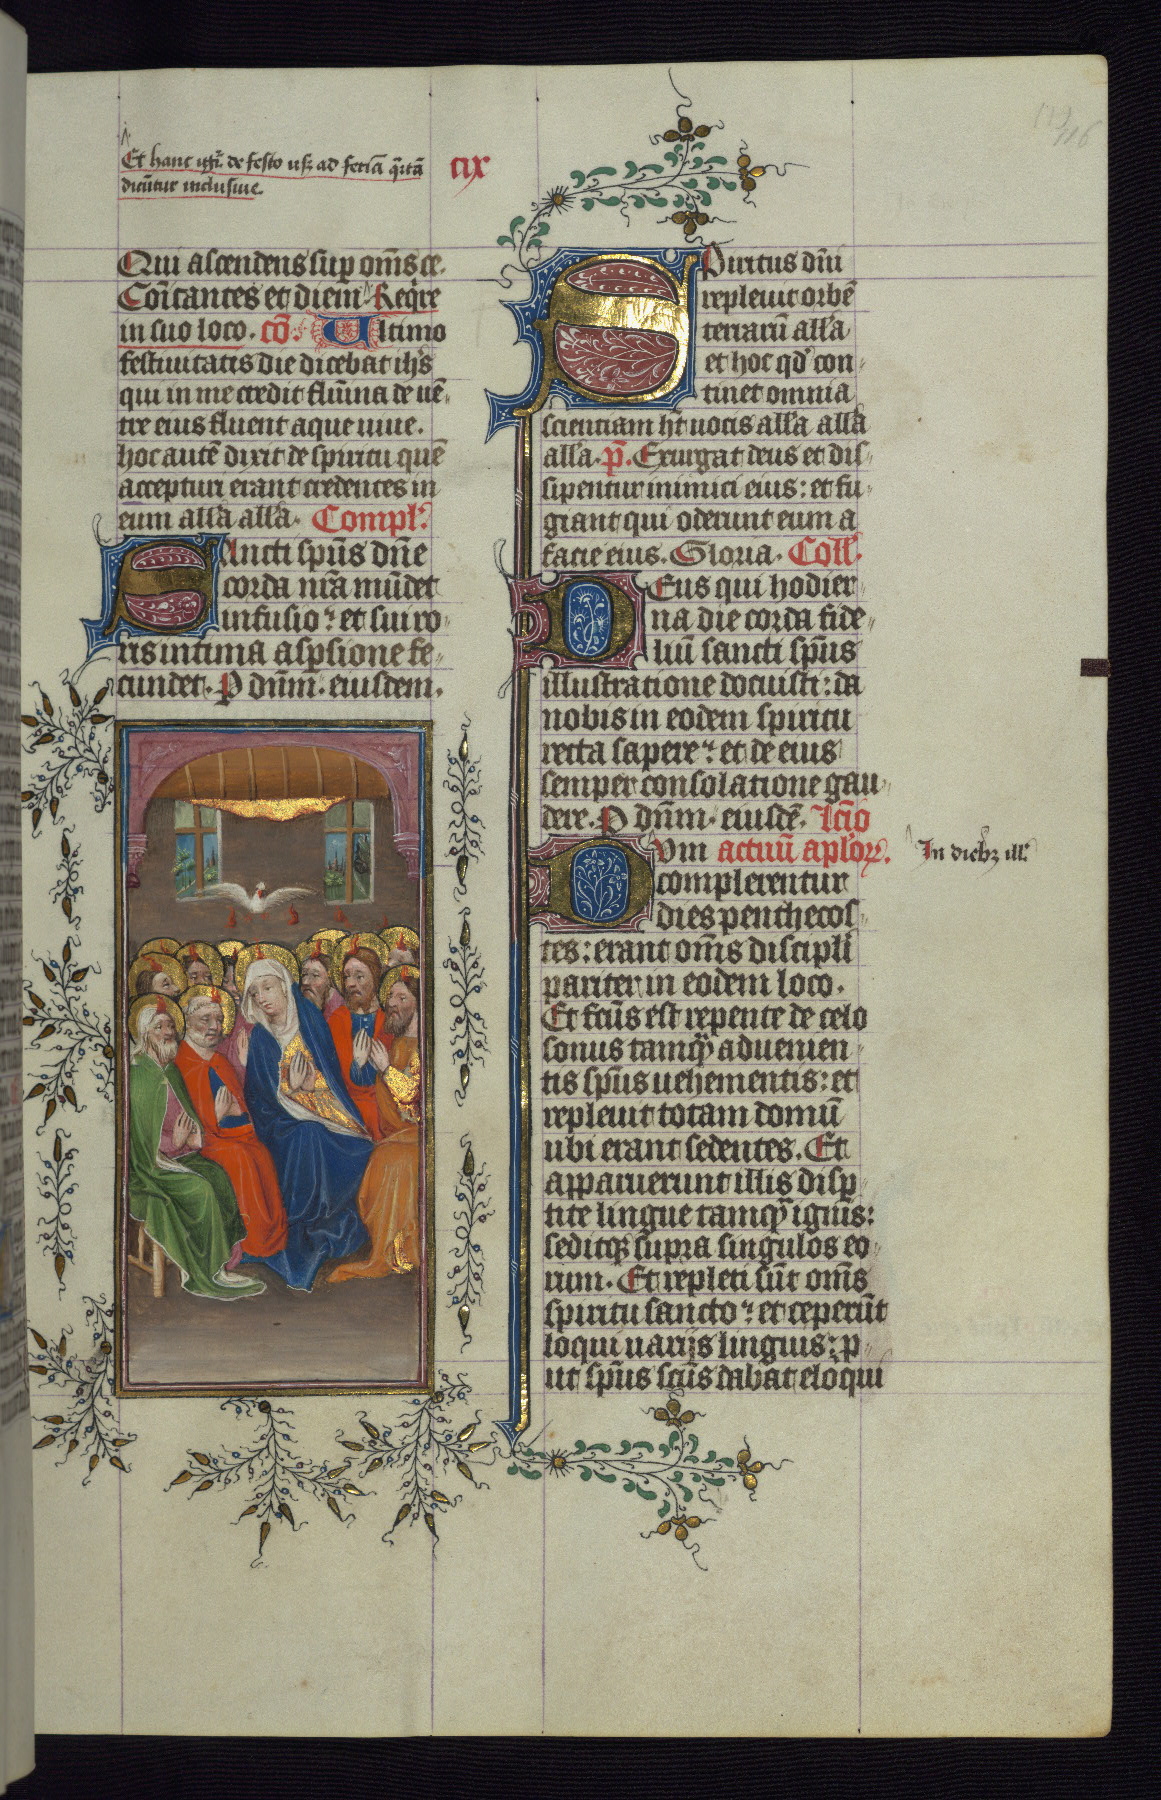 Et hanc igit᷑ de festo usq᷑ ad feriā q᷑rtā
dicūtur inclusiue.
cix
116
Qui ascendens sup om̄s ce.
Cōicantes et diem. Reqre
in suo loco. cō. Ultimo
festiuitatis die dicebat ih̄s
qui in me credit flūina de uē
tre eius fluent aque uiue.
hoc autē dixit de spiritu quē
accepturi erant credentes in
eum all̄a all̄a. Compl᷑.
Sancti spūs dn̄e
corda nr̄a mūdet
infusio: et sui ro
ris intima aspsione fe
cundet. P dn̄m. eiusdem.
Spiritus dn̄i
repleuit orbē
terrarū all̄a
et hoc qd̓ con
tinet omnia
scientiam h̄t uocis all̄a all̄a
all̄a. p̄. Exurgat deus et dis
sipentur inimici eius: et fu
giant qui oderunt eum a
facie eius. Gloria. Coll᷑.
Deus qui hodier
na die corda fide
liū sancti spūs
illustratione docuisti: da
nobis in eodem spiritu
recta sapere: et de eius
semper consolatione gau
dere. P dn̄m. eiusdē. Lc̄io
Dum actuū aplōrꝝ.
In dieb᷑ ill᷑
complerentur
dies penthecos
tes: erant om̄s discipli
pariter in eodem loco.
Et fc̄us est repente de celo
sonus tamq᷑ aduenien
tis spūs uehementis: et
repleuit totam domū
ubi erant sedentes. Et
apparuerunt illis disp
tite lingue tamq᷑ ignis:
seditq᷑ supra singulos eo
rum. Et repleti sūt om̄s
spiritu sancto: et ceperūt
loqui uarijs linguis: p
ut spūs sc̄us dabat eloqui